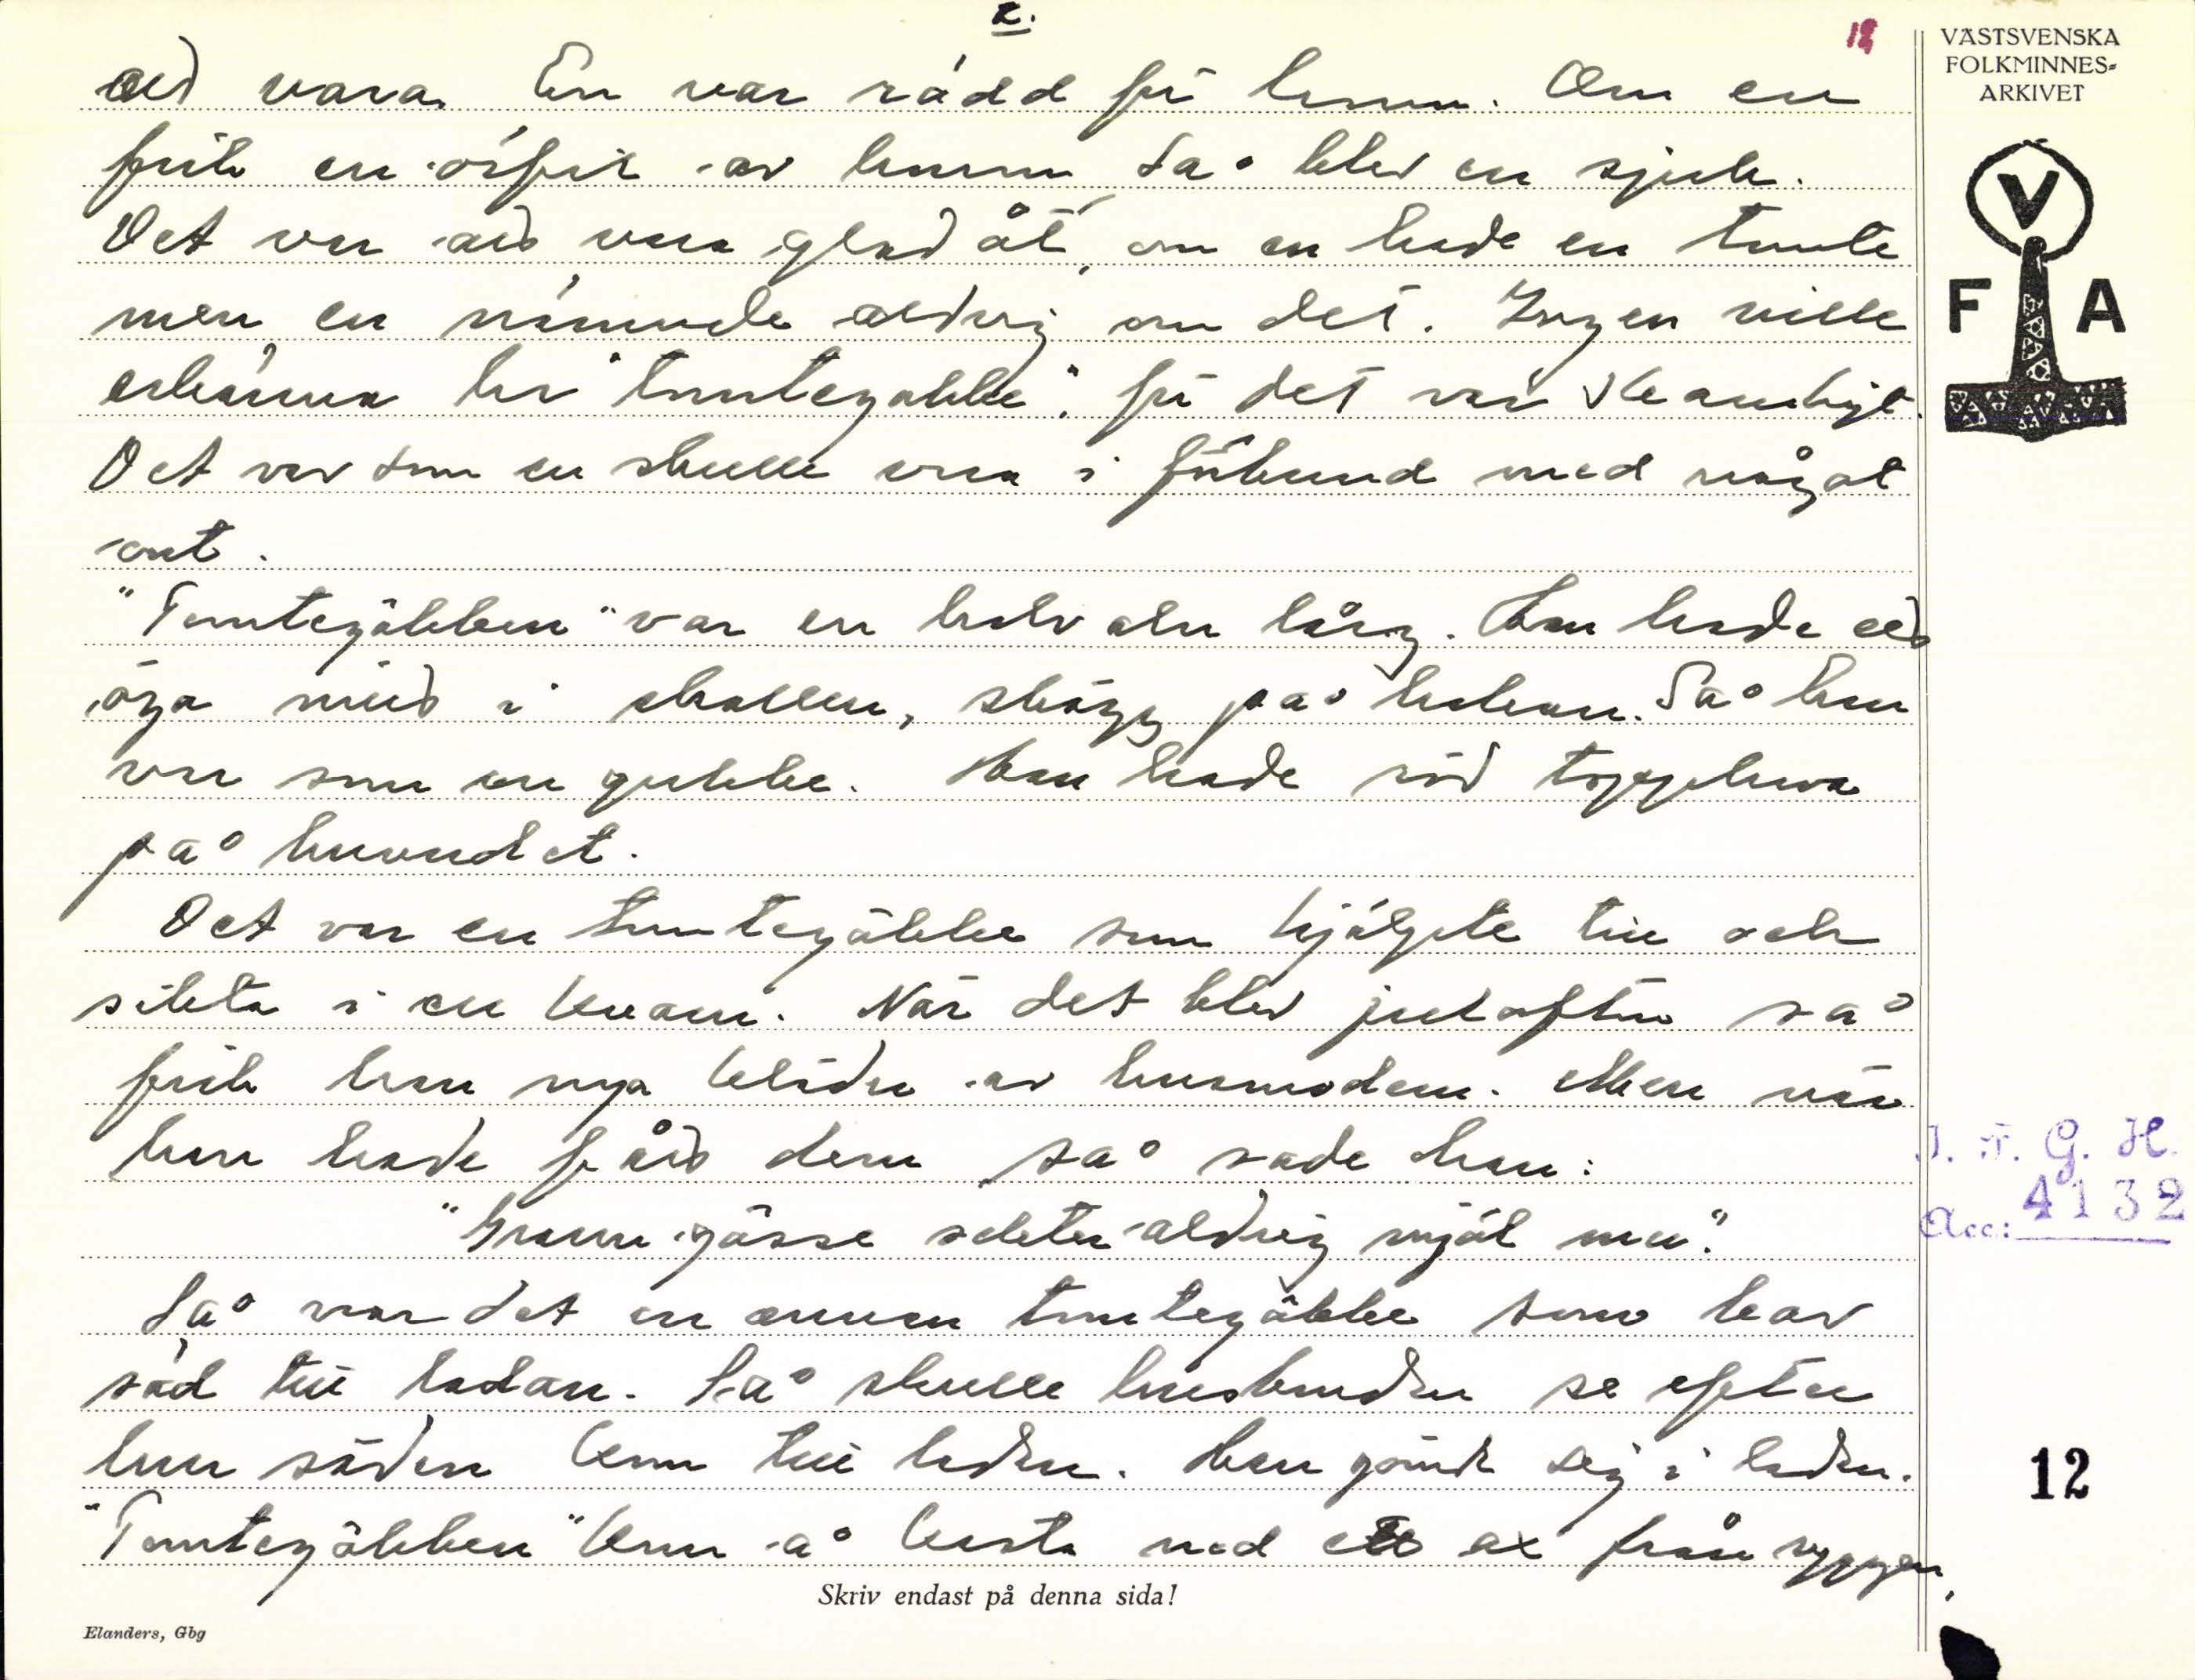 2.
12
VÄSTSVENSKA
FOLKMINNES-
ARKIVET
V
F A
att vara. En var rädd för honom. Om en
fick en örfil av honom, så blev en sjuk.
Det var att vara glad åt, om en hade en tomte
men en nämnde aldrig om det. Ingen ville
erkänna ha "tomtegubbe", för det var skamligt.
Det var som en skulle vara i förbund med något
ont.
"Tomtegöbben" var en halv aln lång. Han hade ett
öga mitt i skallen, skägg på hakan. Så han
var som en gubbe. Han hade röd toppluva
på huvudet.
Det var en tomtegöbbe som hjälpte till och
sikta i en kvarn. När det blev julafton så
fick han nya kläder av husmodern. Men när
han hade fått dem så sade han:
"Grann gösse sikter aldrig mjöl mer."
Så var det en annan tomtegöbbe som bar
säd till ladan. Så skulle husbonden se efter
hur säden kom till ladan. Han gömde sig i ladan.
"Tomtegöbben" kom å kasta ned ett ax från ryggen,
I. F. G. H.
Acc: 4132
12
Skriv endast på denna sida!
Elanders, Gbg